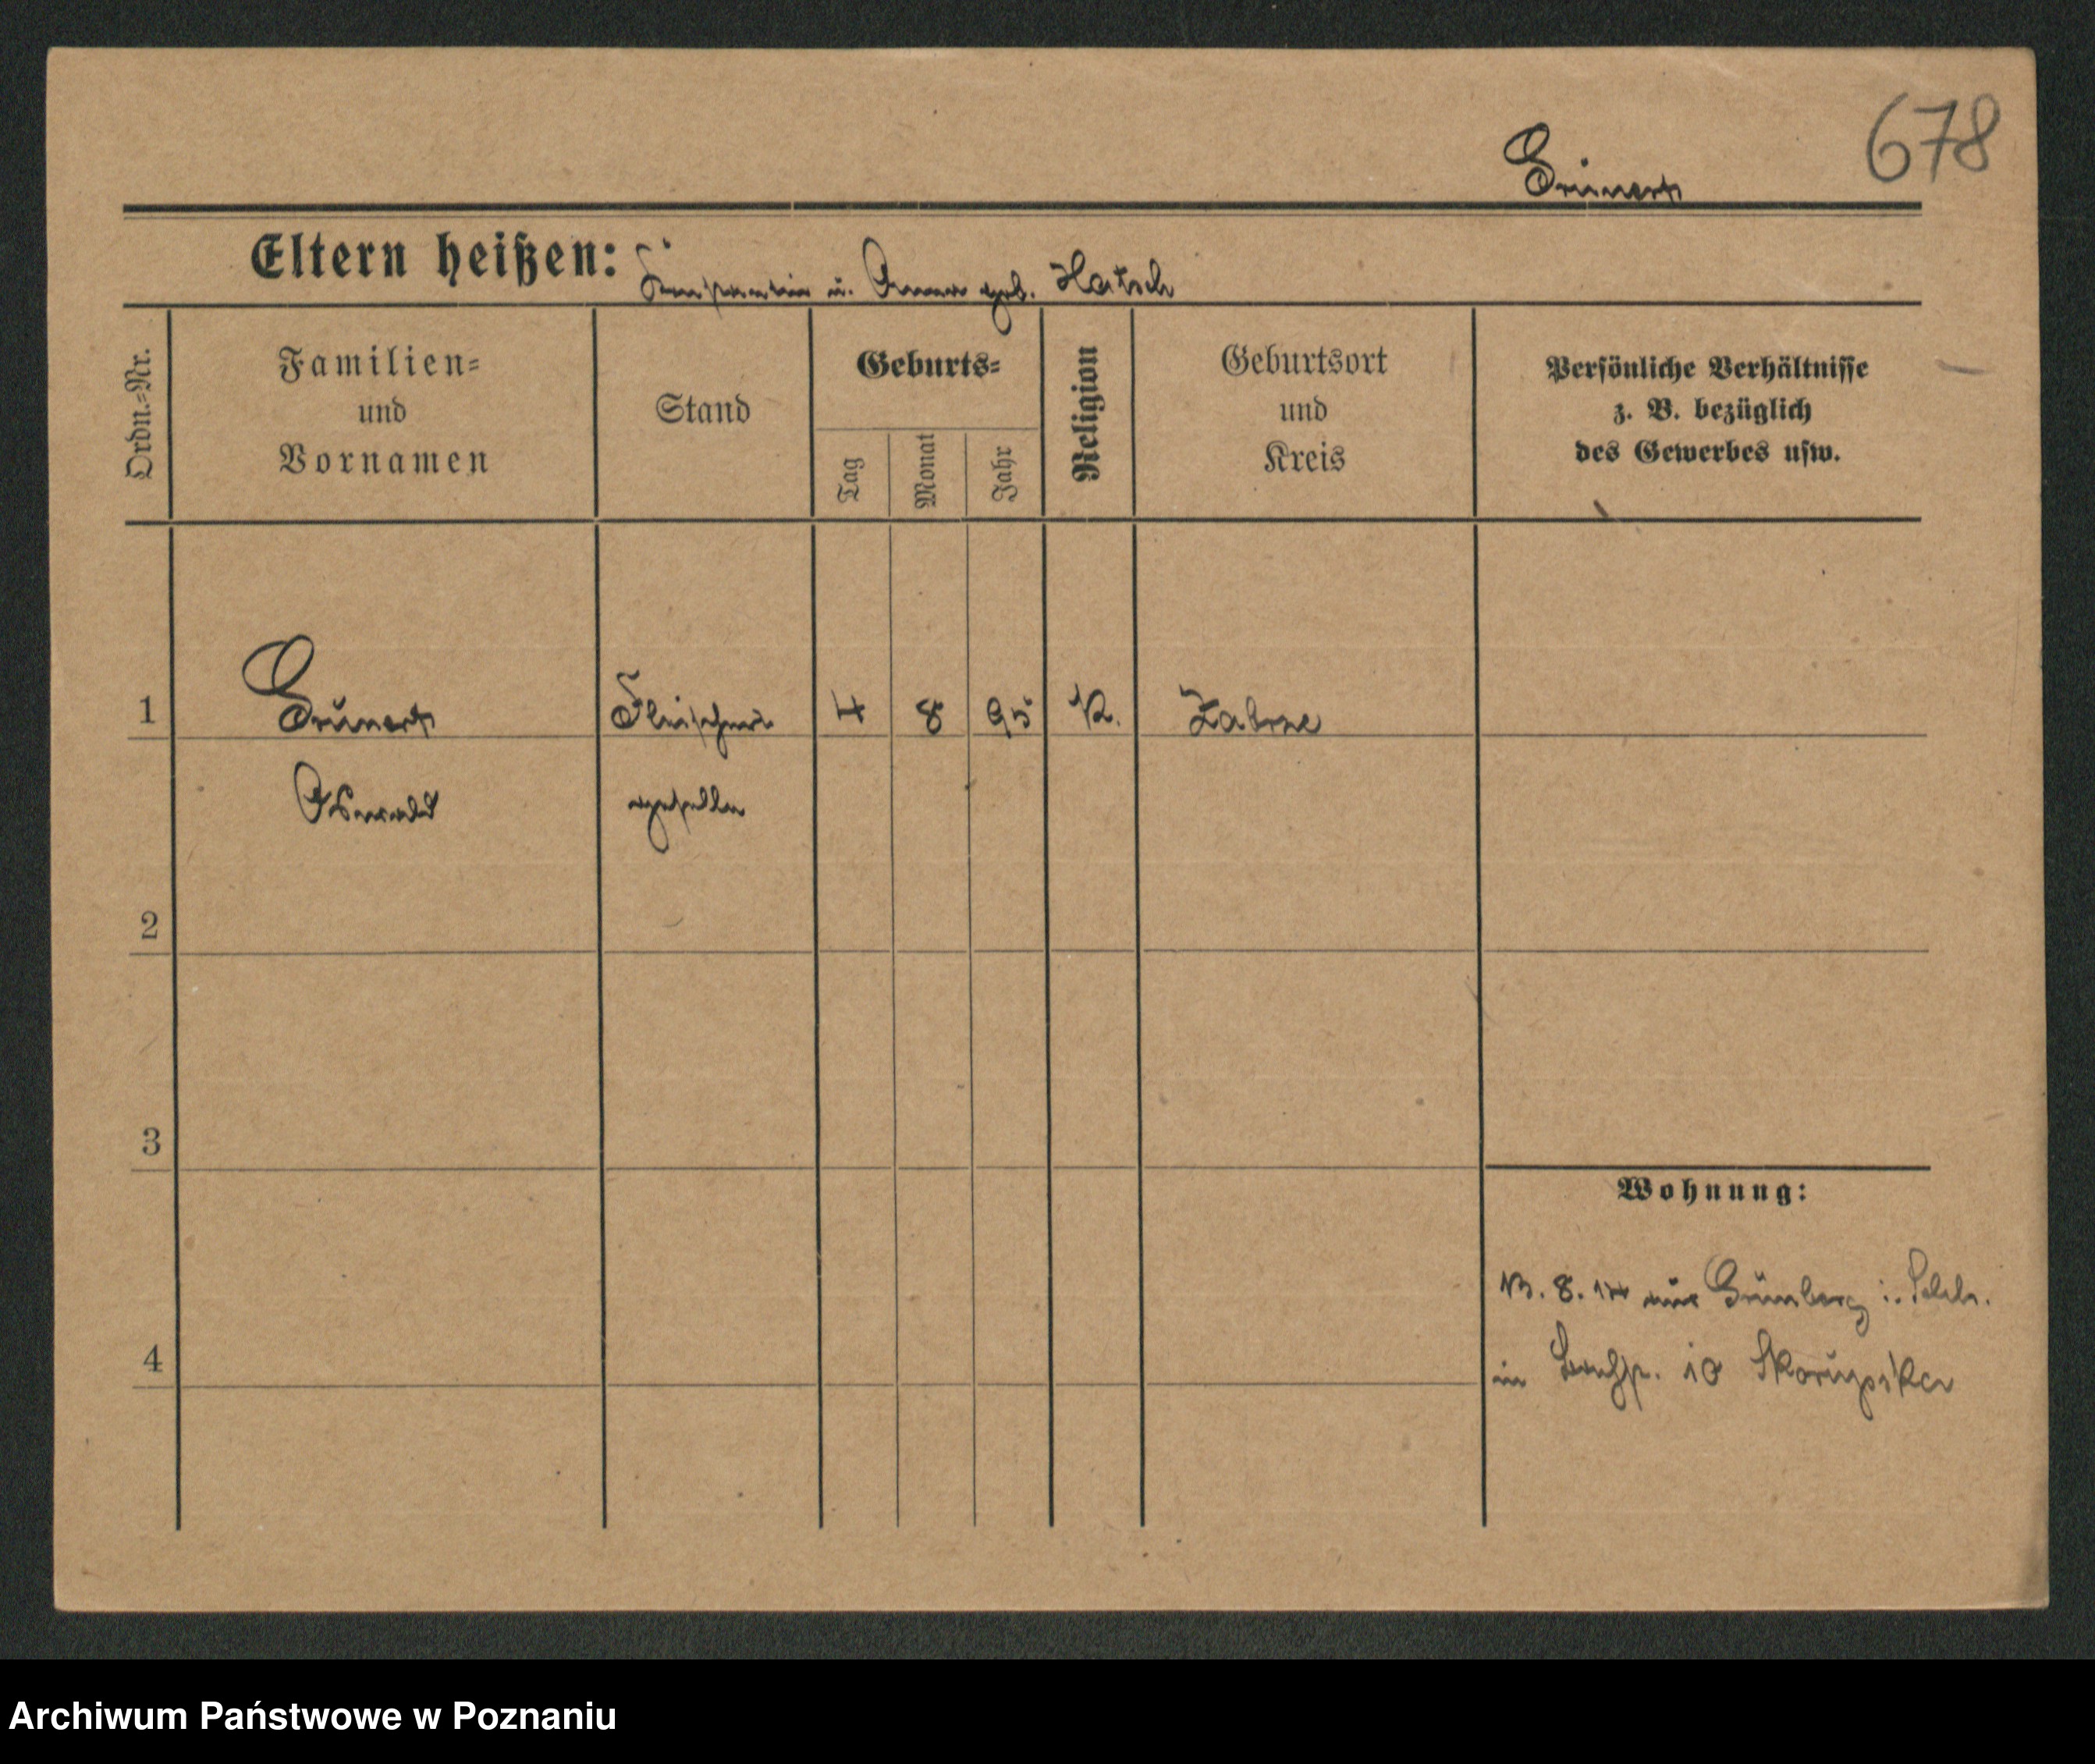 678
Grünert
Eltern heißen: u. Anna geb. Hatsch
Ordn.-Nr.
Familien-
und
Vornamen
Stand
Geburts-
Tag
Monat
Jahr
Religion
Geburtsort
und
Kreis
Persönliche Verhältnisse
z. B. bezüglich
des Gewerbes usw.
1 Grünert Fleischer 4 8 95 K. Zabrze
Oswald geselle
2
3
Wohnung:
13. 8. 14 aus Grünberg i. Schls.
4
in 10 Skorupska
Archiwum Państwowe w Poznaniu